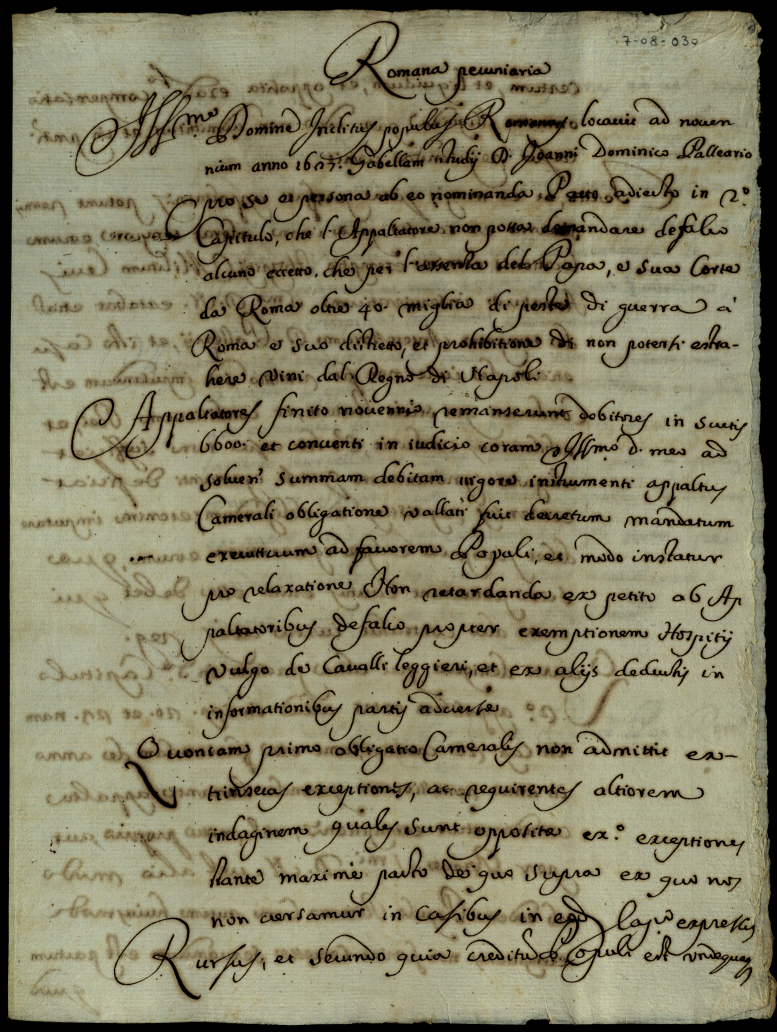 7-08-030
Romana pecuniaria
Ill.me Domine Inclitus populus Romanus locavit ad noven
nium anno 1627. Gabellam studij D. Joanni Dominico Palleario
pro se et persona ab eo nominanda, Pacto adiecto in 2.o
Capitulo, che l'Appaltatore non possa domandare defalco
alcuno eccetto, che per l'assenza del Papa, e sua Corte
da Roma oltre 40. miglia di peste di guerra à
Roma e suo distretto, et prohibitione di non potersi estra-
here vini dal Regno di Napoli.
Appaltatores finito novennio remanserunt debitores in scutis
6600. et conventi in iudicio coram Ill.mo d. meo ad
solven. summam debitam vigore instrumenti appaltus
Camerali obligatione vallati fuit decretum mandatum
executivum ad favorem Populi, et modo instatur
pro relaxatione Non retardanda ex petito ab Ap
paltatoribus defalco propter exemptionem Hospitij
vulgo de Cavalli leggieri, et ex alijs deductis in
informationibus partis adversae
Quoniam primo obligatio Cameralis non admittit ex-
trinsecas exceptiones, ac requirentes altiorem
indaginem quales sunt opposita ex.o exceptiones
stante maxime pacto de quo supra ex quo nos
non versamur in casibus in eod. expressis
Rursus, et secundo quia creditum Populi est undequaq